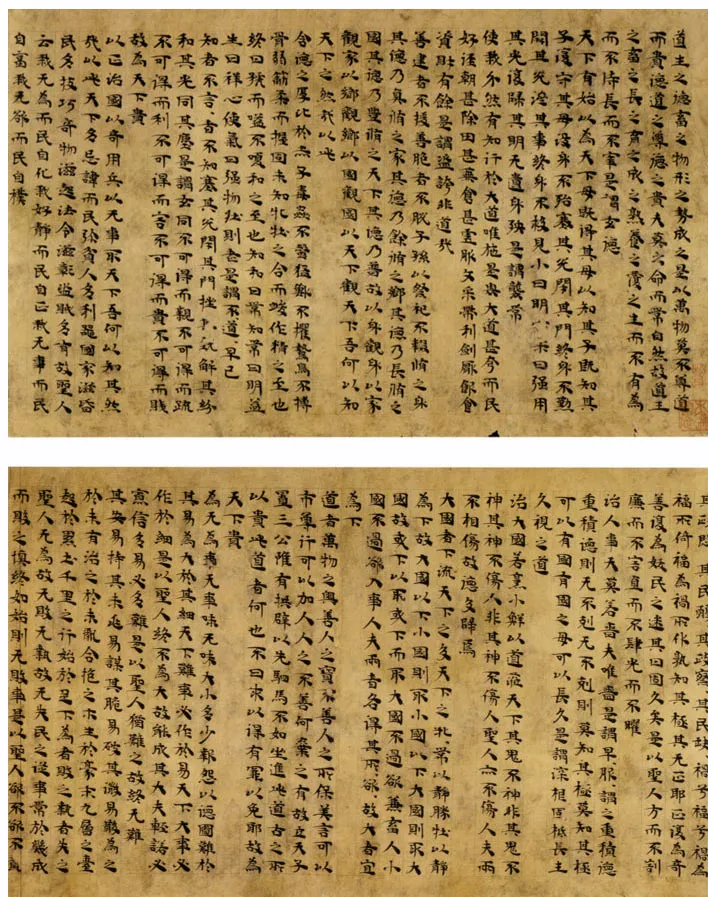 道生之德畜之物形之勢成之是以萬物莫不尊道
而貴德道之尊德之貴夫莫之命而常自然故道生
之畜之長之育之成之熟養之覆之生而不有為
而不恃長而不宰是謂玄德
天下有始以為天下母既得其母以知其子既知其
子復守其母沒身不殆塞其兌閉其門終身不勤
開其兌濟其事終身不救見小曰明柔曰强用
其光復歸其明无遺身殃是謂襲常
使我介然有知行於大道唯施是畏大道甚夷而民
好徑朝甚除田甚蕪倉甚虛服文采帶利劍厭飲食
資財有餘是謂盜誇非道哉
善建者不拔善抱者不脫子孫以祭祀不輟脩之身
其德乃真脩之家其德乃餘脩之鄉其德乃長脩之
國其德乃豐脩之天下其德乃普故以身觀身以家
觀家以鄉觀鄉以國觀國以天下觀天下吾何以知
天下之然哉以此
含德之厚比於赤子毒蟲不螫猛獸不攫鷙鳥不搏
骨弱筋柔而握固未知牝牡之合而作精之至也
終日號而嗌不嗄和之至也知和曰常知常曰明益
生曰祥心使氣曰强物壯則老是謂不道早已
知者不言言者不知塞其兌閉其門挫其解其紛
和其光同其塵是謂玄同不可得而親不可得而疏
不可得而利不可得而害不可得而貴不可得而賤
故為天下貴
以正治國以奇用兵以无事取天下吾何以知其然
哉以此天下多忌諱而民弥貧人多利器國家滋昏
民多技巧奇物滋起法令滋彰盜賊多有故聖人
云我无為而民自化我好靜而民自正我无事而民
自富我无欲而民自樸
其政悶其民醇其政察其民缺禍兮福兮禍為
福所倚福為禍所伏孰知其極其无正耶正復為奇
善復為妖民之迷其曰固久矣是以聖人方而不割
廉而不害直而不肆光而不曜
治人事天莫若嗇夫唯嗇是謂早服謂之重積德
重積德則无不剋无不剋則莫知其極莫知其極
可以有國有國之母可以長久是謂深根固柢長生
久視之道
治大國若烹小鮮以道莅天下其鬼不神非其鬼不
神其神不傷人非其神不傷人聖人亦不傷人夫兩
不相傷故德交歸焉
大國者下流天下之交天下之牝常以靜勝牡以靜
為下故大國以下小國則取小國小國以下大國則取大
國故或下以取或下而取大國不過欲兼畜人小
國不過欲入事人夫兩者各得其所欲故大者宜
為下
道者萬物之奧善人之寶不善人之所保美言可以
市尊行可以加人人之不善何棄之有故立天子
置三公雖有拱璧以先駟馬不如坐進此道古之所
以貴此道者何也不曰求以得有罪以免耶故為
天下貴
為无為事无事味无味大小多少報怨以德圖難於
其易為大於其細天下難事必作於易天下大事必
作於細是以聖人終不為大故能成其大夫輕諾必
寡信多易必多難是以聖人猶難之故終无難
其安易持其未兆易謀其脆易破其微易散為之
於未有治之於未亂合抱之木生於豪末九層之臺
起於累土千里之行始於足下為者敗之執者失之
聖人无為故无敗无執故无失民之從事常於幾成
而敗之慎終如始則无敗事是以聖人欲不欲不